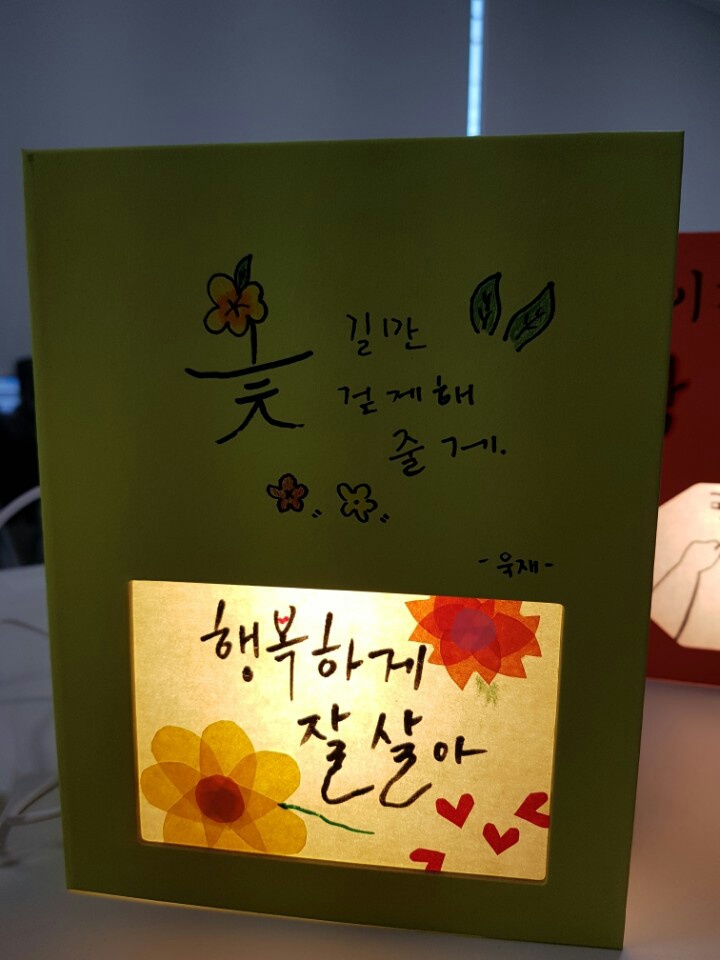 꽃 길만
걷게해
줄게.
-욱재-
행복하게
잘 살아